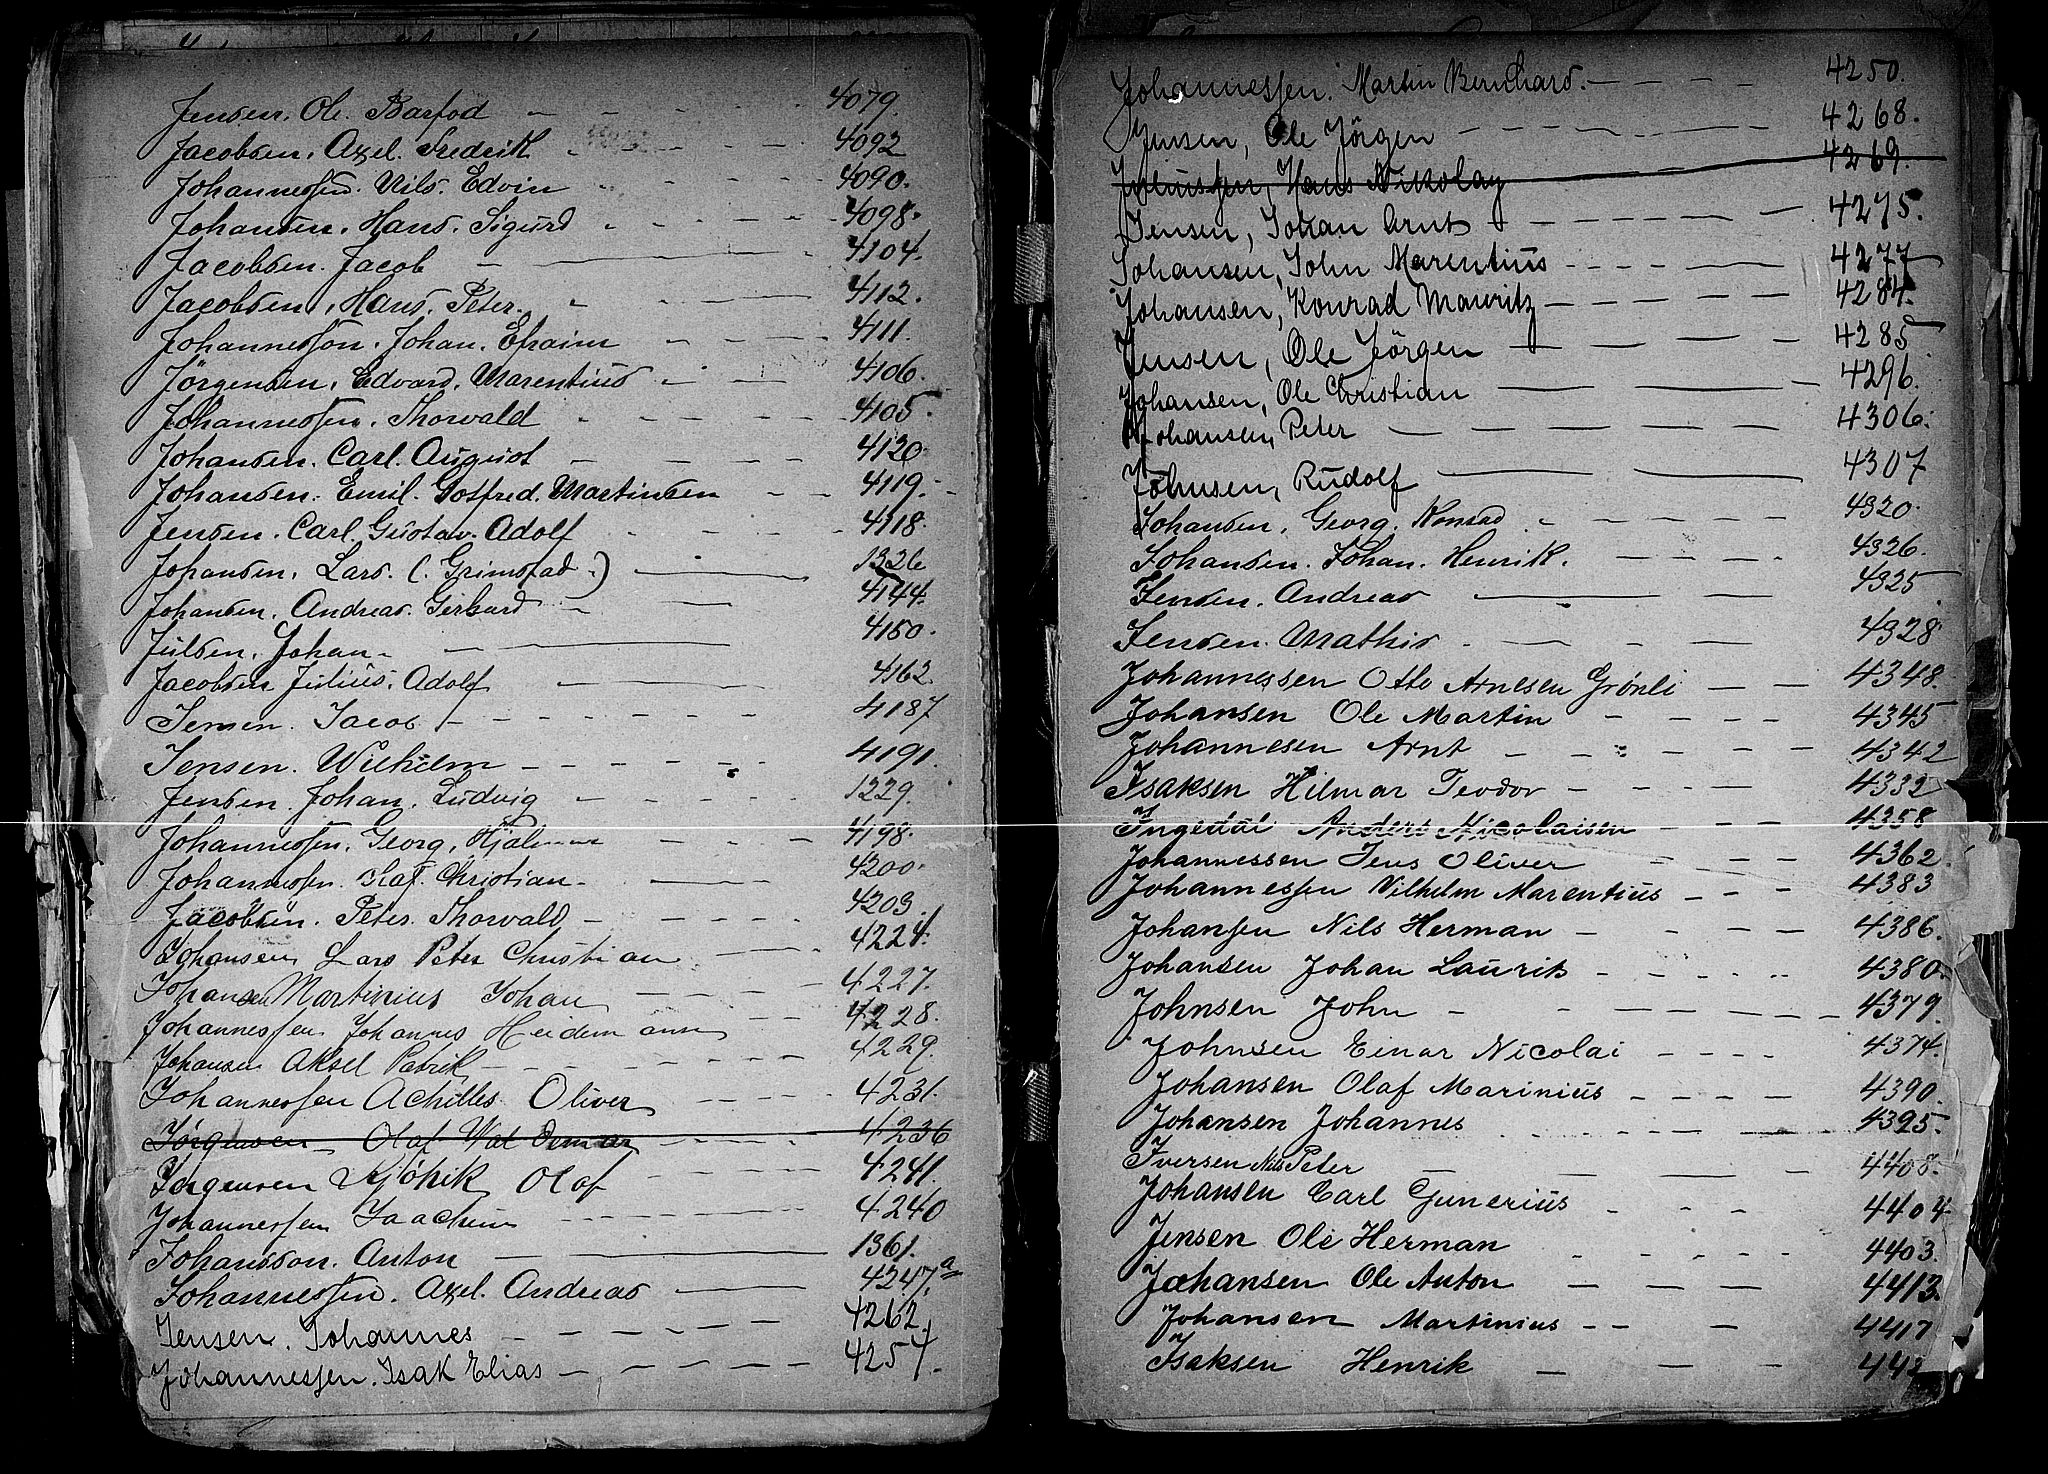 Jensen. Ole. Barfod — — 4079.
Jacobsen. Axel. Fredrik 4092
Johannessen. Nils. Edvin 4090.
Johansen. Hans. Sigurd 4098.
Jacobsen. Jacob — 4104.
Jacobsen. Hans. Peter. 4112.
Johannesson. Johan. Efraim 4111.
Jörgensen. Edvard. Marentius 4106.
Johannessen. Thorvald 4105.
Johansen. Carl. August 4120.
Johansen. Emil. Gotfred. Martinsen 4119.
Jensen. Carl. Gustav. Adolf 4118.
Johansen. Lars. (Grimstad.) 1326
Johansen. Andreas. Gerhard 4144.
Julsen. Johan — 4150.
Jacobsen Julius. Adolf 4162
Jensen. Jacob — 4187
Jensen. Wilhelm — 4191.
Jensen. Johan. Ludvig 1229.
Johannessen. Georg. Hjalmar 4198.
Johannessen. Olaf. Christian. 4200.
Jacobsen. Peter. Thorvald 4203.
Johansen Lars Peter Christian 4224.
Johansen Martinius Johan 4227.
Johannessen Johannes Heidemann 4228.
Johansen Aksel Patrik 4229.
Johannessen Achilles Oliver 4231.
Jörgensen Olaf Valdemar 4236
Jörgensen Olaf 4241.
Johannessen Joachim 4240
Johansson. Anton 1361.
Johannessen. Axel. Andreas 4247.a
Jensen. Johannes 4262.
Johannessen. Isak Elias 4254.
Johannessen. Martin Bernhard. 4250.
Jensen, Ole Jörgen 4268.
Juliussen, Hans Nikolay 4269.
Jensen, Johan Arnt 4275.
Johansen, John Marentius 4277
Johansen, Konrad Mauritz 4284.
Jensen, Ole Jörgen 4285
Johansen, Ole Christian 4296.
Johansen, Peter 4306.
Johnsen, Rudolf 4307
Johansen, Georg. Konrad 4320.
Johansen. Johan. Henrik. 4326.
Jensen. Andreas 4325
Jensen. Mathis 4328.
Johannesen Otto Arnesen Grönli 4348.
Johansen Ole Martin 4345
Johannesen Arnt 4342
Isaksen Hilmar Teodor 4332
Ingedal Anders Nicolaisen 4358
Johannessen Jens Oliver 4362.
Johannessen Vilhelm Marentius 4383
Johansen Nils Herman 4386.
Johansen Johan Laurits 4380.
Johnsen John 4379.
Johnsen Einar Nicolai 4374.
Johansen Olaf Marinius 4390.
Johansen Johannes 4395.
Iversen Nils Peter 4408.
Johansen Carl Gunerius 4404
Jensen Ole Herman 4403.
Johansen Ole Anton 4413.
Johansen Martinius 4417
Isaksen Henrik